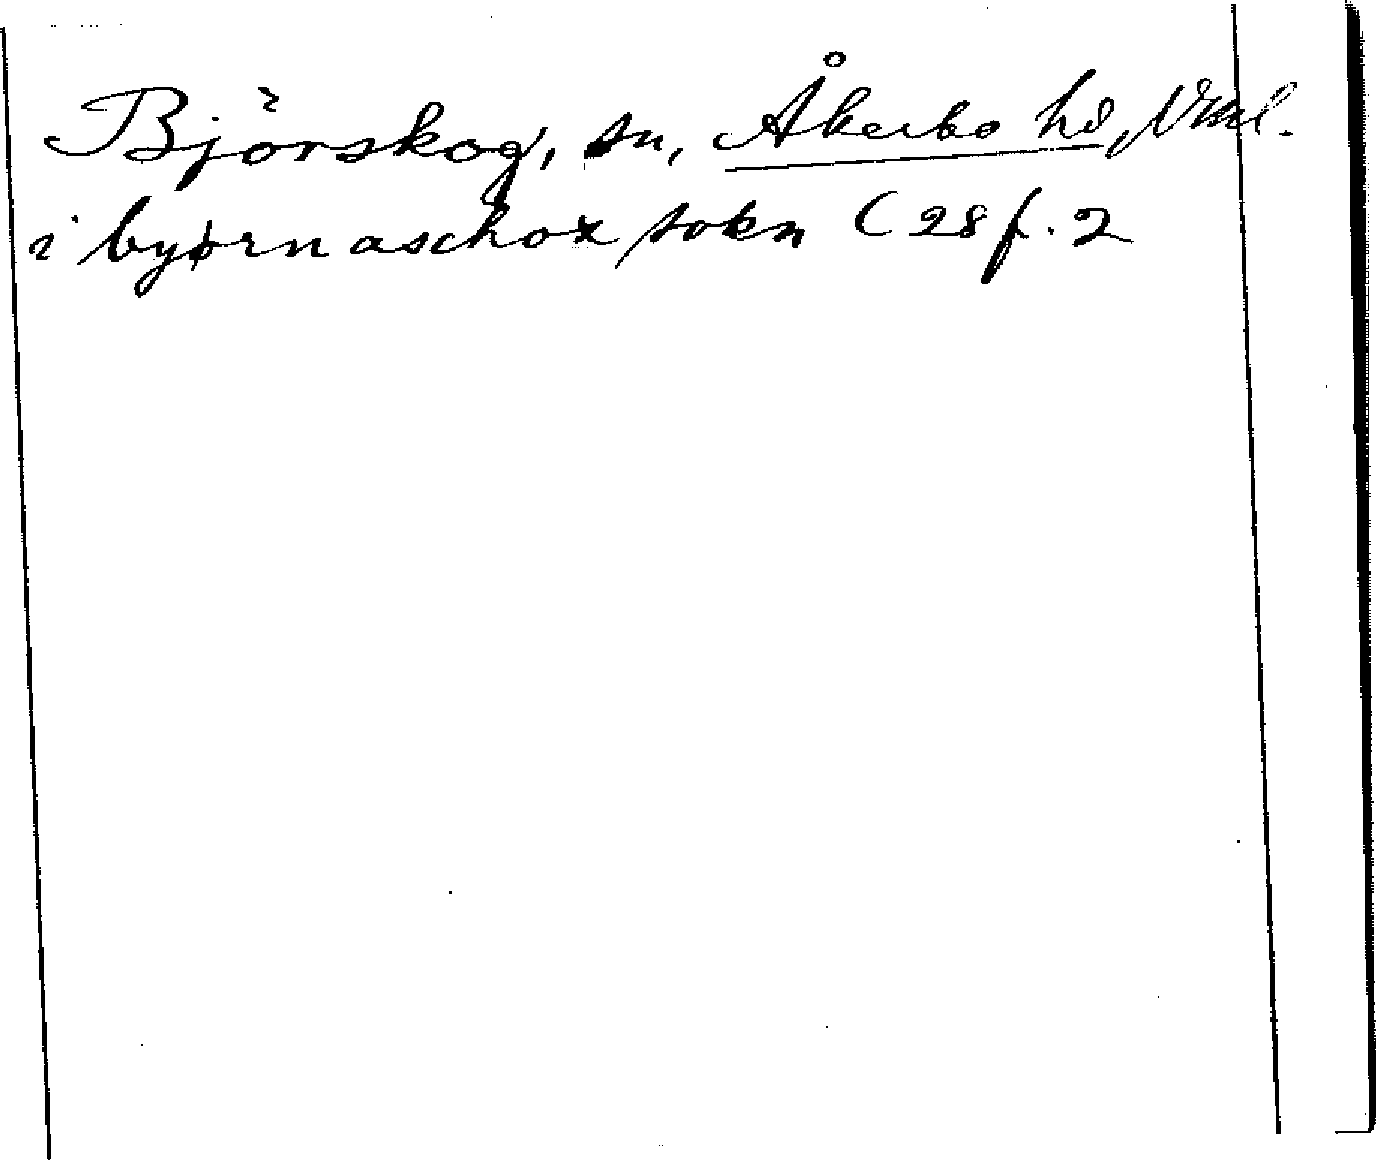 Björskog, sn, Åkerbo hd, Vml.
i byørnaschox sokn C 28 f. 2